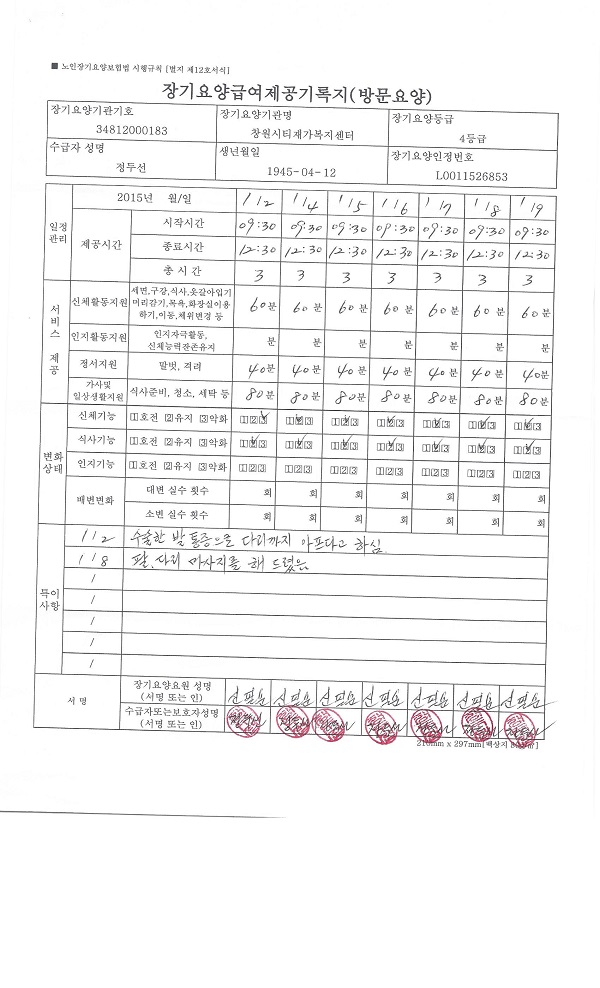 ■ 노인장기요양보험법 시행규칙 [별지 제12호서식]
장기요양급여제공기록지(방문요양)
장기요양기관기호 장기요양기관명 장기요양등급
34812000183 창원시티재가복지센터 4등급
수급자 성명 생년월일 장기요양인정번호
정두선 1945-04-12 L0011526853
일정관리 2015년 월/일 1/2 1/4 1/5 1/6 1/7 1/8 1/9
제공시간 시작시간 09:30 09:30 09:30 09:30 09:30 09:30 09:30
종료시간 12:30 12:30 12:30 12:30 12:30 12:30 12:30
총 시 간 3 3 3 3 3 3 3
서비스 제공 신체활동지원 세면,구강,식사,옷갈아입기
머리감기,목욕,화장실이용
하기,이동,체위변경 등 60분 60분 60분 60분 60분 60분 60분
인지활동지원 인지자극활동,
신체능력잔존유지 분 분 분 분 분 분 분
정서지원 말벗, 격려 40분 40분 40분 40분 40분 40분 40분
가사및
일상생활지원 식사준비, 청소, 세탁 등 80분 80분 80분 80분 80분 80분 80분
변화상태 신체기능 1호전 2유지 3악화 123 123 123 123 123 123 123
식사기능 1호전 2유지 3악화 123 123 123 123 123 123 123
인지기능 1호전 2유지 3악화 123 123 123 123 123 123 123
배변변화 대변 실수 횟수 회 회 회 회 회 회 회
소변 실수 횟수 회 회 회 회 회 회 회
특이사항 1/2 수술한 발 통증으로 다리까지 아프다고 하심
1/8 팔,다리 마사지를 해 드렸음
/
/
/
/
/
서 명 장기요양요원 성명
(서명 또는 인) 신필요 신필요 신필요 신필요 신필요 신필요 신필요
수급자또는보호자성명
(서명 또는 인)
210mm x 297mm[백상지 80g/㎡]